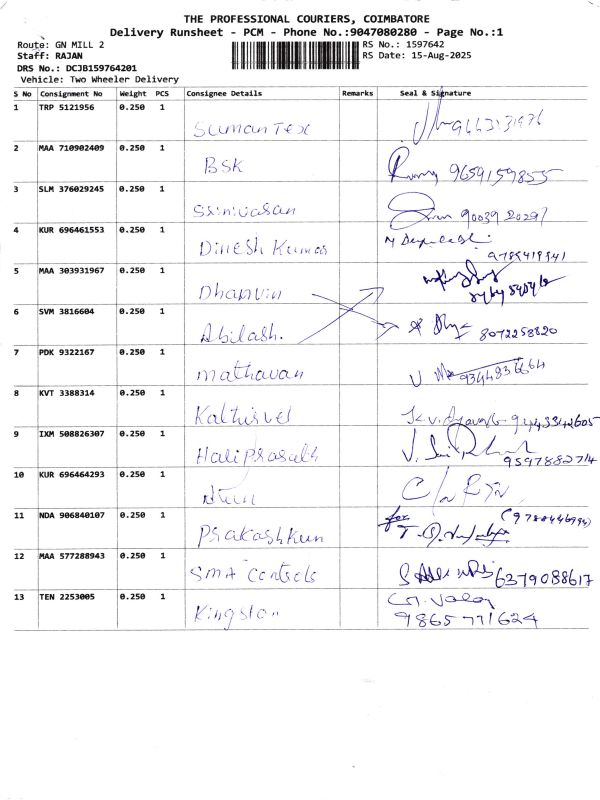 THE PROFESSIONAL COURIERS, COIMBATORE
Delivery Runsheet - PCM - Phone No.:9047080280 - Page No.:1
Route: GN MILL 2 RS No.: 1597642
Staff: RAJAN RS Date: 15-Aug-2025
DRS No.: DCJB159764201
Vehicle: Two Wheeler Delivery
S No Consignment No Weight PCS Consignee Details Remarks Seal & Signature
1 TRP 5121956 0.250 1 Suman Tex
2 MAA 710902409 0.250 1 BSK 9659159855
3 SLM 376029245 0.250 1 Srinivasan 9003920297
4 KUR 696461553 0.250 1 Dinesh Kumar
5 MAA 303931967 0.250 1 Dhanvin
6 SVM 3816604 0.250 1 Abilash. 8072258820
7 PDK 9322167 0.250 1 mathavan
8 KVT 3388314 0.250 1 Kathirvel 9443342605
9 IXM 508826307 0.250 1 Hariprasath 9597882714
10 KUR 696464293 0.250 1
11 NDA 906840107 0.250 1 Prakashkum for
12 MAA 577288943 0.250 1 SMA Controls 6379088617
13 TEN 2253005 0.250 1 Kingston
9865771624